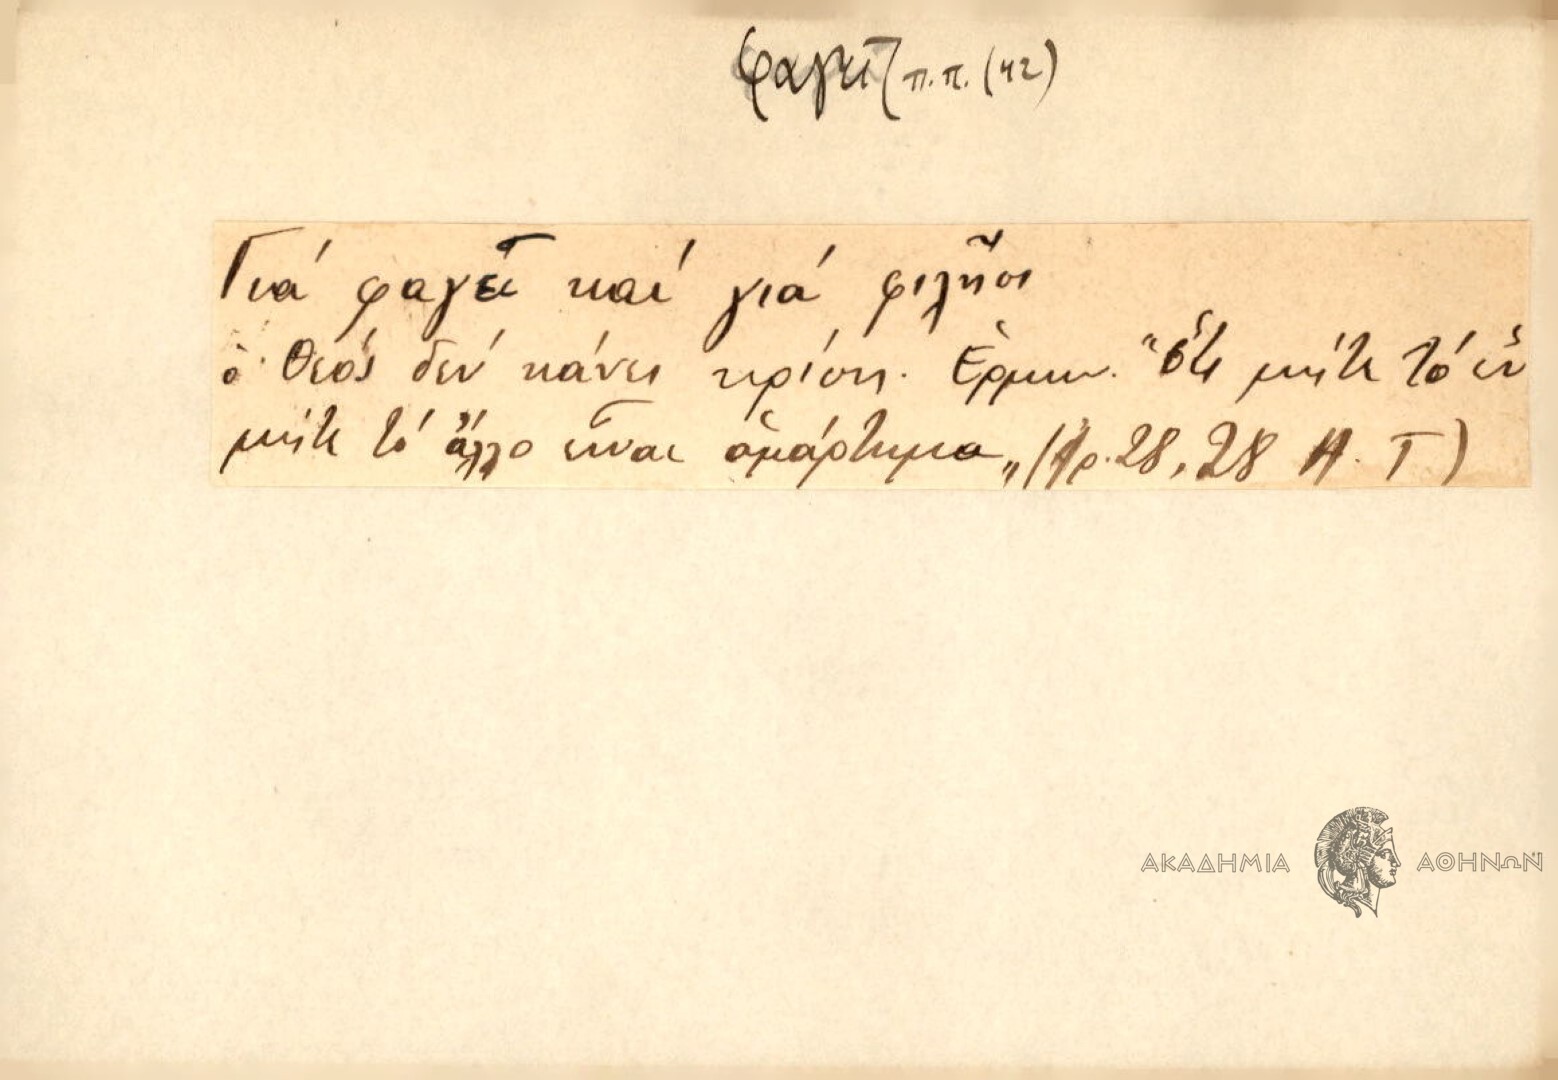 φαγεῖ π.π. (42)
Γιά φαγεῖ καί γιά φιλῆσι
ὁ Θεός δέν κάνει κρίση. Ἑρμην. "ὅτι μήτε τό ἕν
μήτε τό ἄλλο εἶναι ἁμάρτημα„ (Ἀρ. 28, 28 Α. Γ)
ΑΚΑΔΗΜΙΑ ΑΘΗΝΩΝ